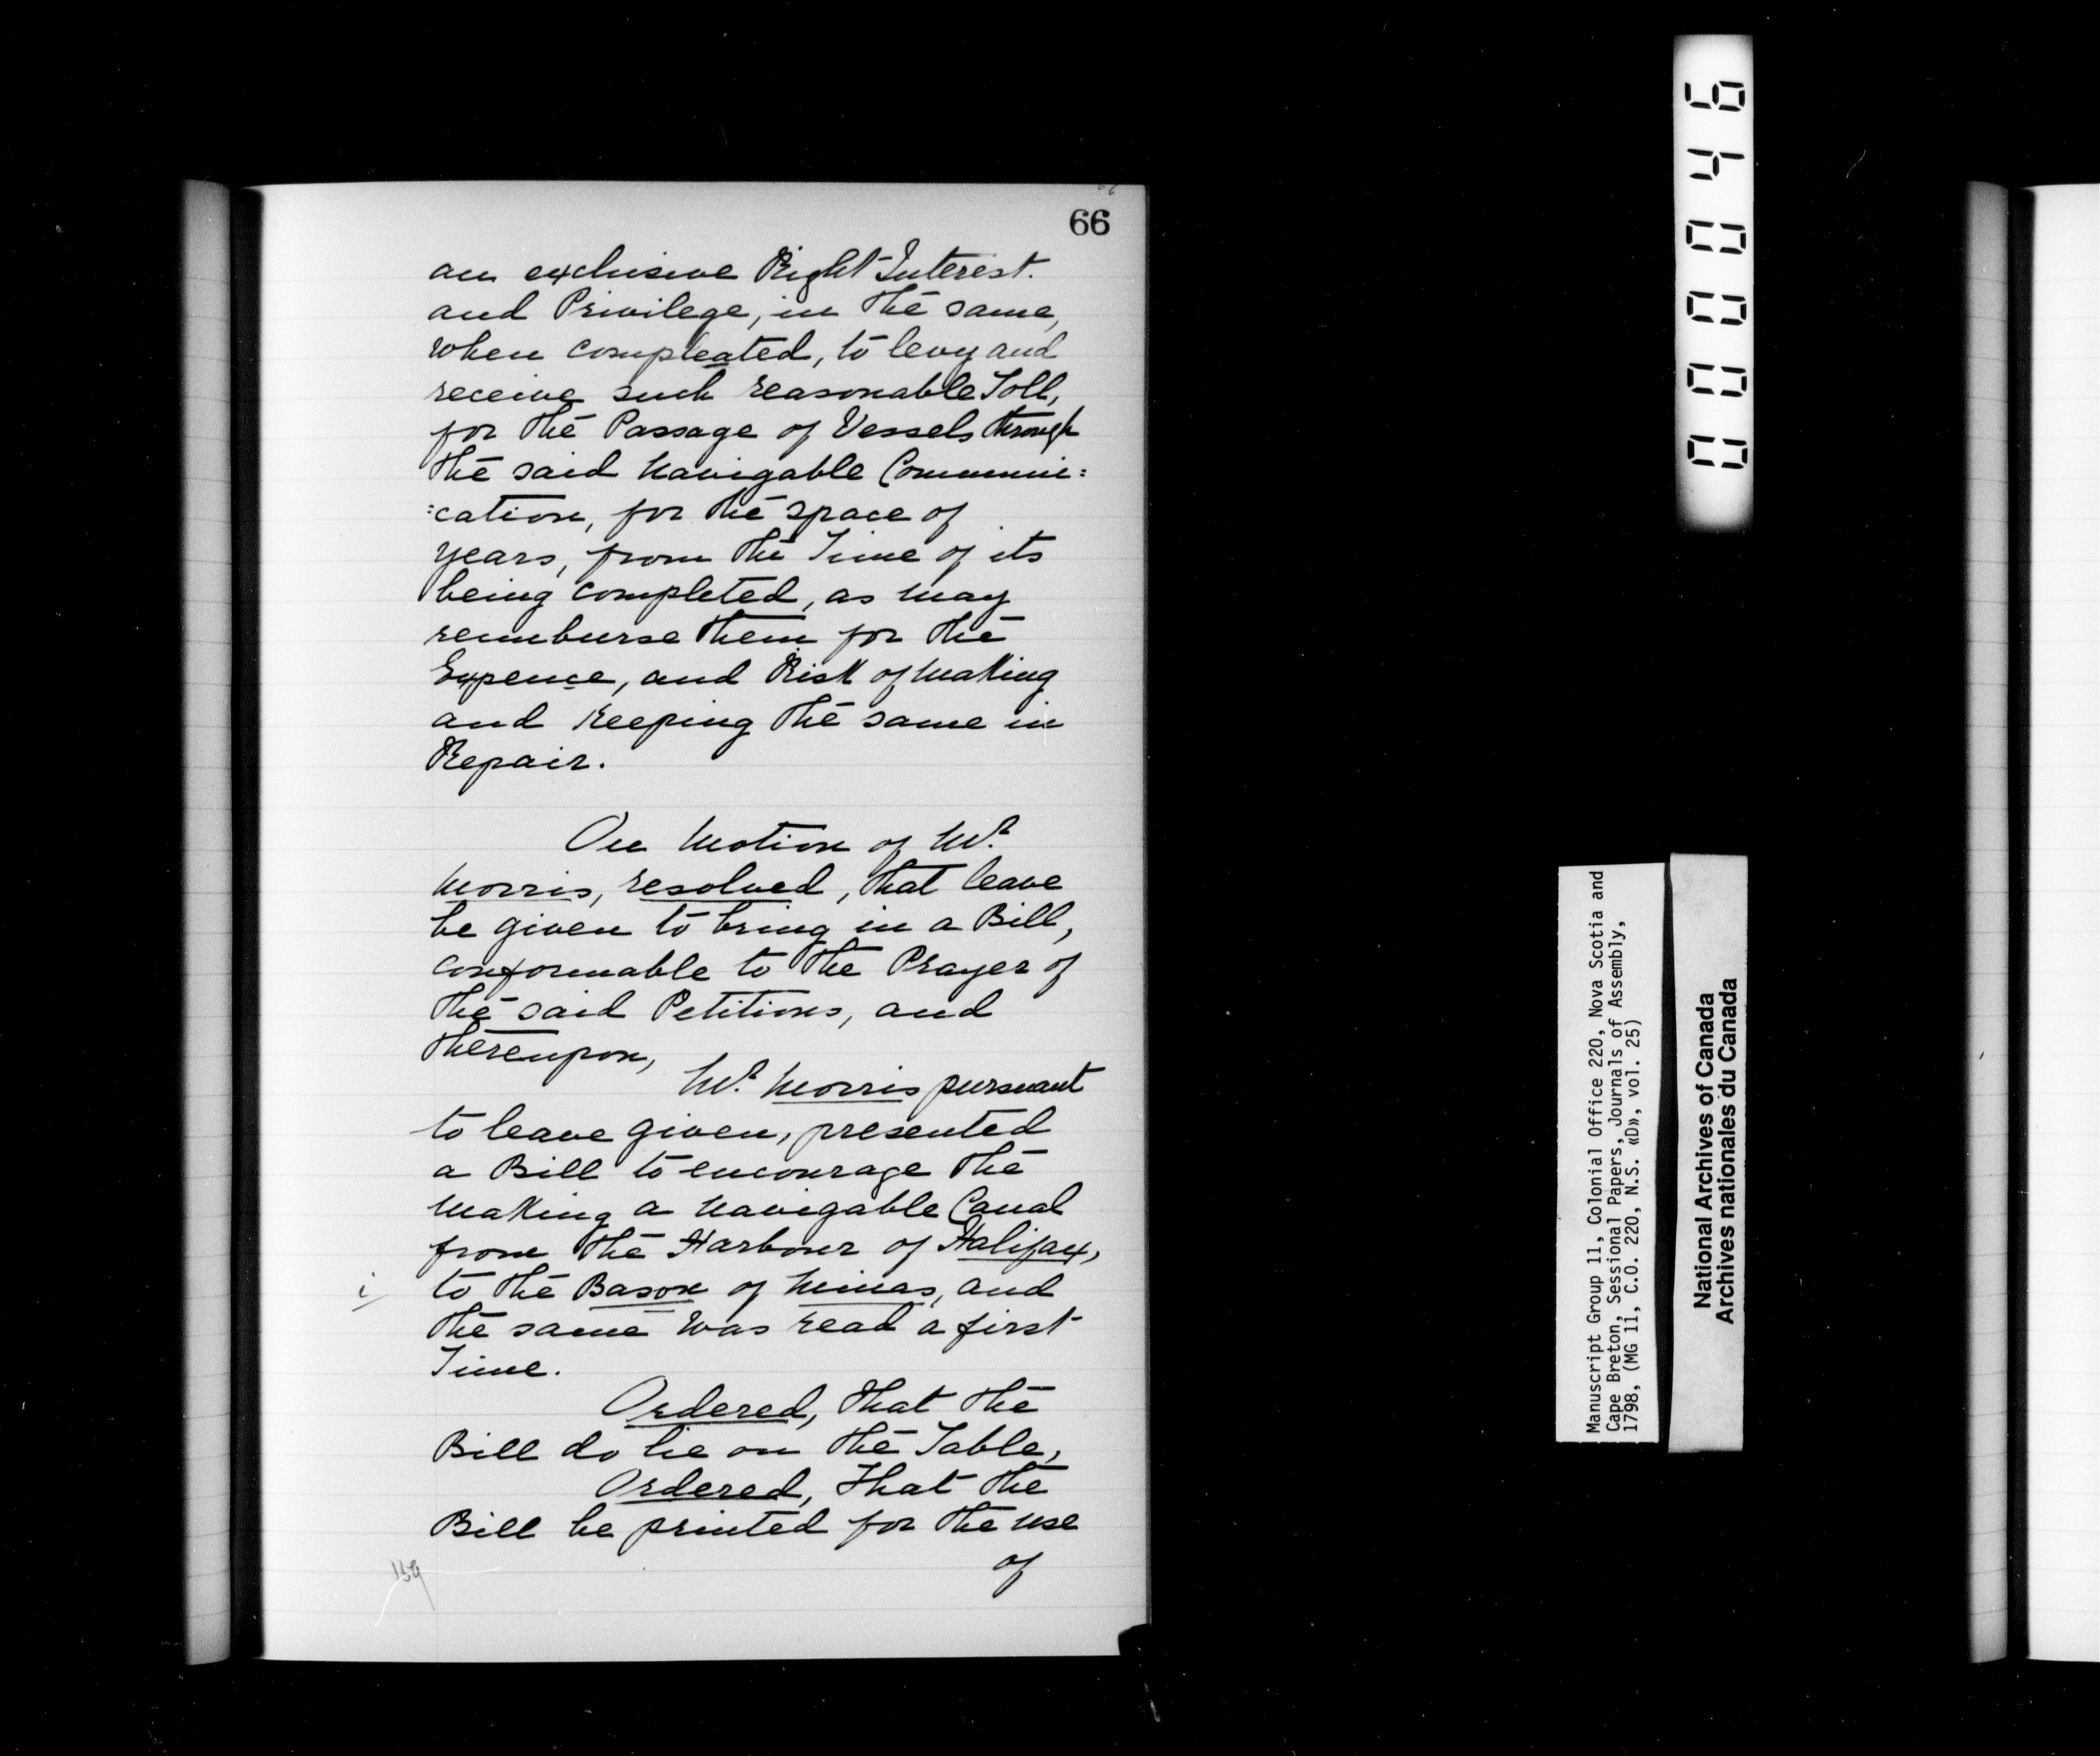 66
an exclusive Right Interest.
and Privilege, in the same,
when compleated, to levy and
receive such reasonable Toll,
for the Passage of Vessels through
the said navigable Communi:
:cation, for the space of
years, from the Time of its
being completed, as may
reimburse them for the
Expence, and Risk of making
and keeping the same in
Repair.
On Motion of Mr.
Morris, resolved, that leave
be given to bring in a Bill,
conformable to the Prayer of
the said Petitions, and
thereupon,
Mr. Morris pursuant
to leave given, presented
a Bill to encourage the
making a navigable Canal
from the Harbour of Halifax,
i
to the Bason of Minas, and
the same was read a first
Time.
Ordered, that the
Bill do lie on the Table,
Ordered, That the
Bill be printed for the use
of
000046
Manuscript Group 11, Colonial Office 220, Nova Scotia and
Cape Breton, Sessional Papers, Journals of Assembly,
1798, (MG 11, C.O. 220, N.S. «D», vol. 25)
National Archives of Canada
Archives nationales du Canada